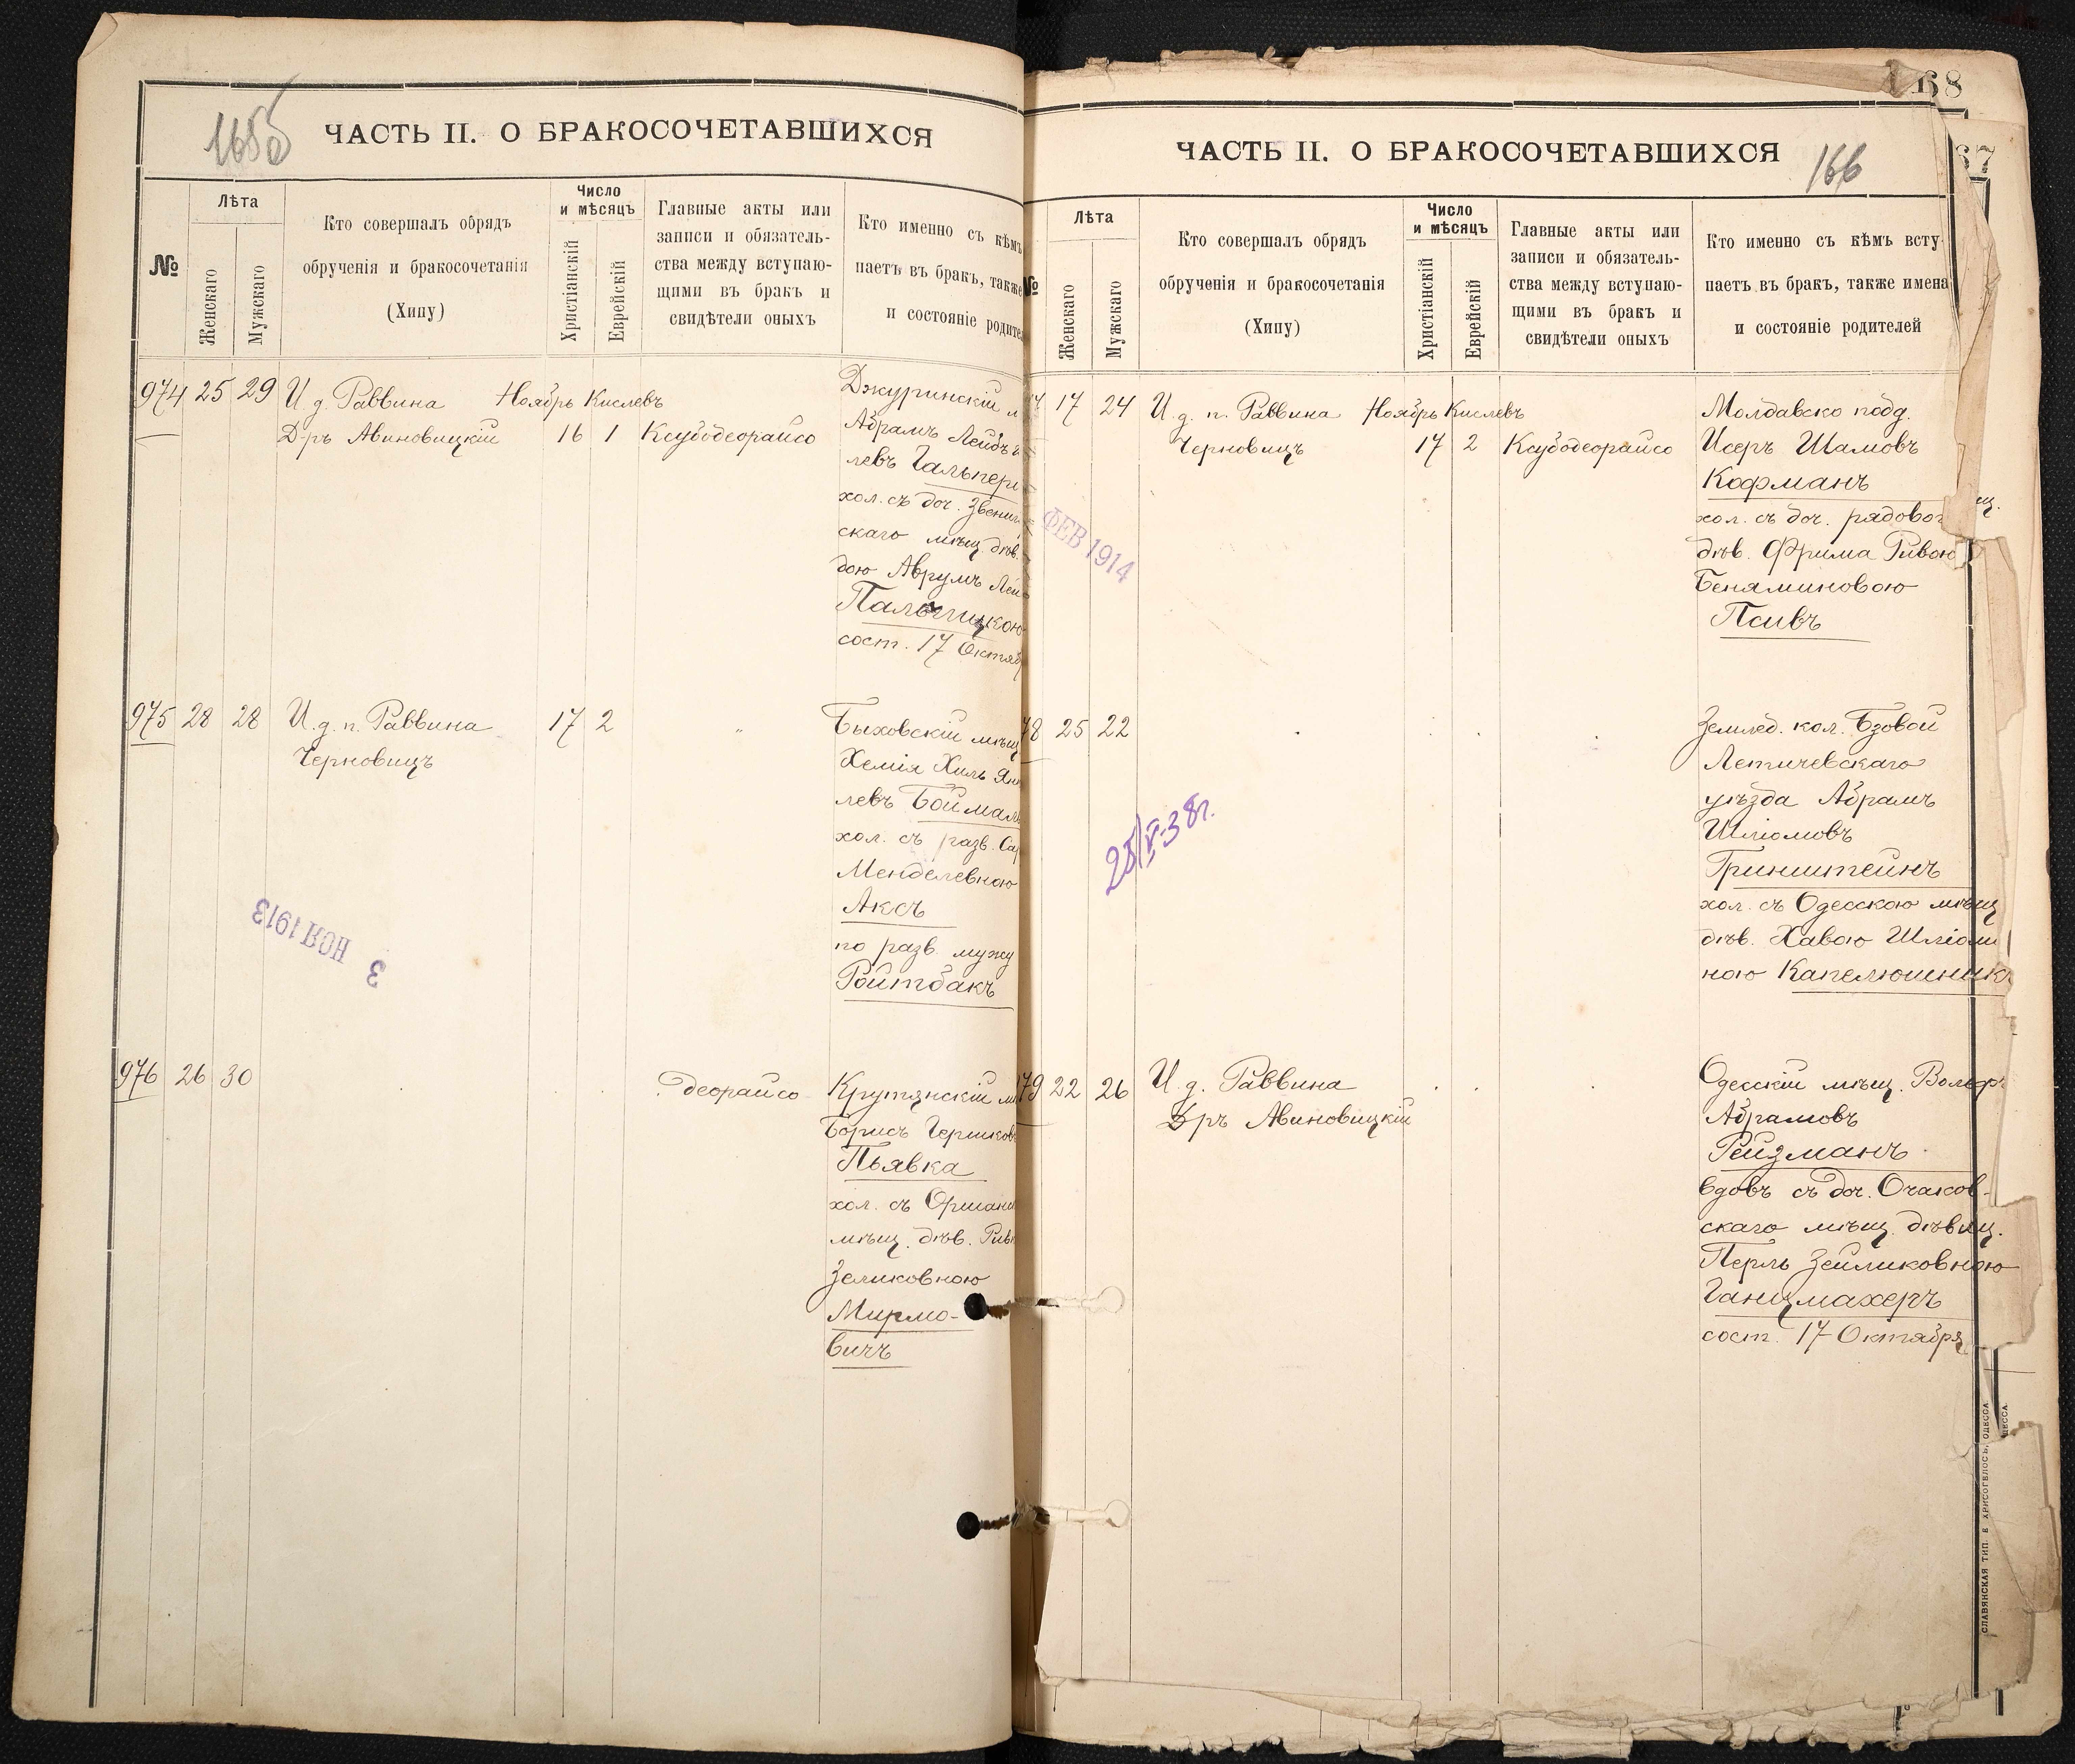 ЧАСТЬ II. О БРАКОСОЧЕТАВШИХСЯ
№
Лѣта
Женскаго
Мужскаго
Кто совершалъ обрядъ
обрученія и бракосочетанія
(Хипу)
Число
и мѣсяцъ
Христіанскій
Еврейскій
Главные акты или
записи и обязатель-
ства между вступаю-
щими въ бракъ и
свидѣтели оныхъ
Кто именно съ кѣмъ
паетъ въ бракъ, также
и состояніе родите
974 25 29 И. д. Раввина Ноябрь Кислевъ
Д-ръ Авиновицкій 16 1 Ксубодеорайсо
Джуринскій
Абрамъ Лейбъ
левъ Гальпери
хол. съ доч. Звениг
скаго мѣщ. дѣв.
бою Аврумъ Лей
Пальчицкою
сост. 17 Октяб
975 28 28 И. д. п. Раввина 17 2
Черновицъ
Быховскій мѣщ
Хемія Хиль Ян
левъ Бойман
хол. съ разв. Сар
Менделевною
Аксъ
по разв. мужу
Ройтбакъ
3 НОЯ 1913
976 26 30 деорайсо
Крутянскій
Борисъ Гершков
Пьявка
хол. съ Оршанс
мѣщ. дѣв. Рив
Зеликовною
Мирмо-
вичъ
168
67
ЧАСТЬ II. О БРАКОСОЧЕТАВШИХСЯ
166
№
Лѣта
Женскаго
Мужскаго
Кто совершалъ обрядъ
обрученія и бракосочетанія
(Хипу)
Число
и мѣсяцъ
Христіанскій
Еврейскій
Главные акты или
записи и обязатель-
ства между вступаю-
щими въ бракъ и
свидѣтели оныхъ
Кто именно съ кѣмъ всту
паетъ въ бракъ, также имена
и состояніе родителей
17 24 И. д. п. Раввина Ноябрь Кислевъ
Черновицъ 17 2 Ксубодеорайсо
Молдавско подд.
Исеръ Шамовъ
Кофманъ
хол. съ доч. рядовог
дѣв. Фрима Ривою
Беняминовою
Псивъ
ФЕВ 1914
78 25 22
Землед. кол. Бзовой
Летичевскаго
уѣзда Абрамъ
Шліомовъ
Гринштейнъ
хол. съ Одесскою мѣщ
дѣв. Хавою Шліом
ною Капелюшник
25/V-38г.
79 22 26 И. д. Раввина
Д-ръ Авиновицкій
Одесскій мѣщ. Вольфъ
Абрамовъ
Рейзманъ
вдовъ съ доч. Очаков-
скаго мѣщ. дѣвиц.
Перль Зейликовною
Ганцмахеръ
сост. 17 Октября
СЛАВЯНСКАЯ ТИП. Е ХРИСОГЕЛОСЪ, ОДЕССА.